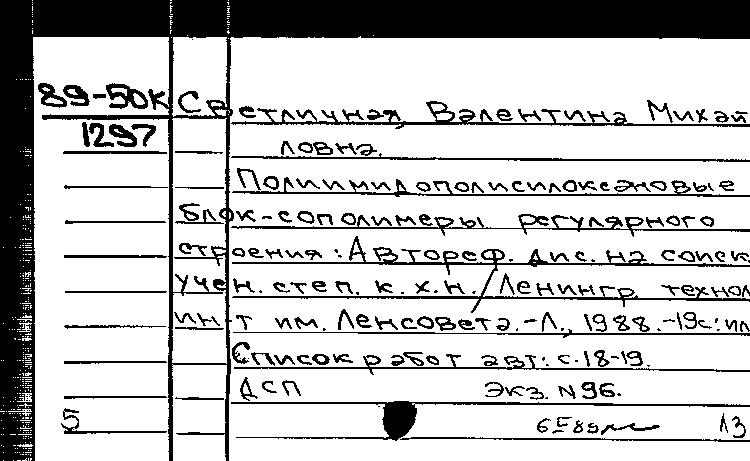 89-50К Светличная, Валентина Михай
1297 ловна.
Полиимидополисилоксановые
блок-сополимеры регулярного
строения: Автореф. дис. на соиск.
учен. степ. к. х. н. / Ленингр. технол
ин-т им. Ленсовета.-Л., 1988.-19с: ил
Список работ авт: с.18-19.
ДСП Экз. N96.
5